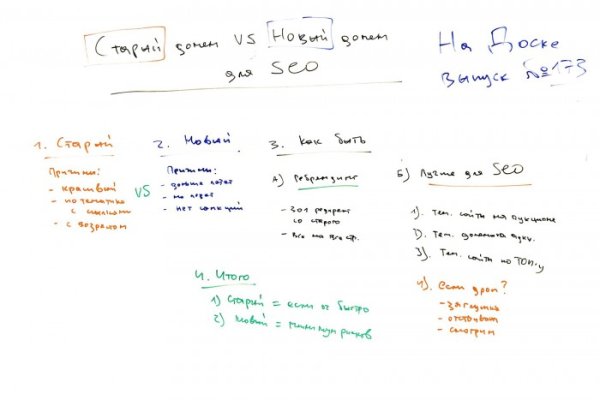 Старый домен VS Новый домен
для SEO
На Доске
выпуск №173
1. Старый
Причины:
- красивый
- по тематике
с ссылками
- с возрастом
VS
2. Новый
Причины:
- дольше
- не
- нет санкций
3. Как быть
А) Ребрендинг
- 301 редирект
со старого
- все на все стр.
Б) Лучше для SEO
1). Тем. сайты на аукционе
2). Тем. домены аукц.
3). Тем. сайты по ТОП-у
4). если дроп?
- загнулись
- отстаивать
- смотрим
4. Итого
1) Старый = если ок быстро
2) Новый = минимум рисков